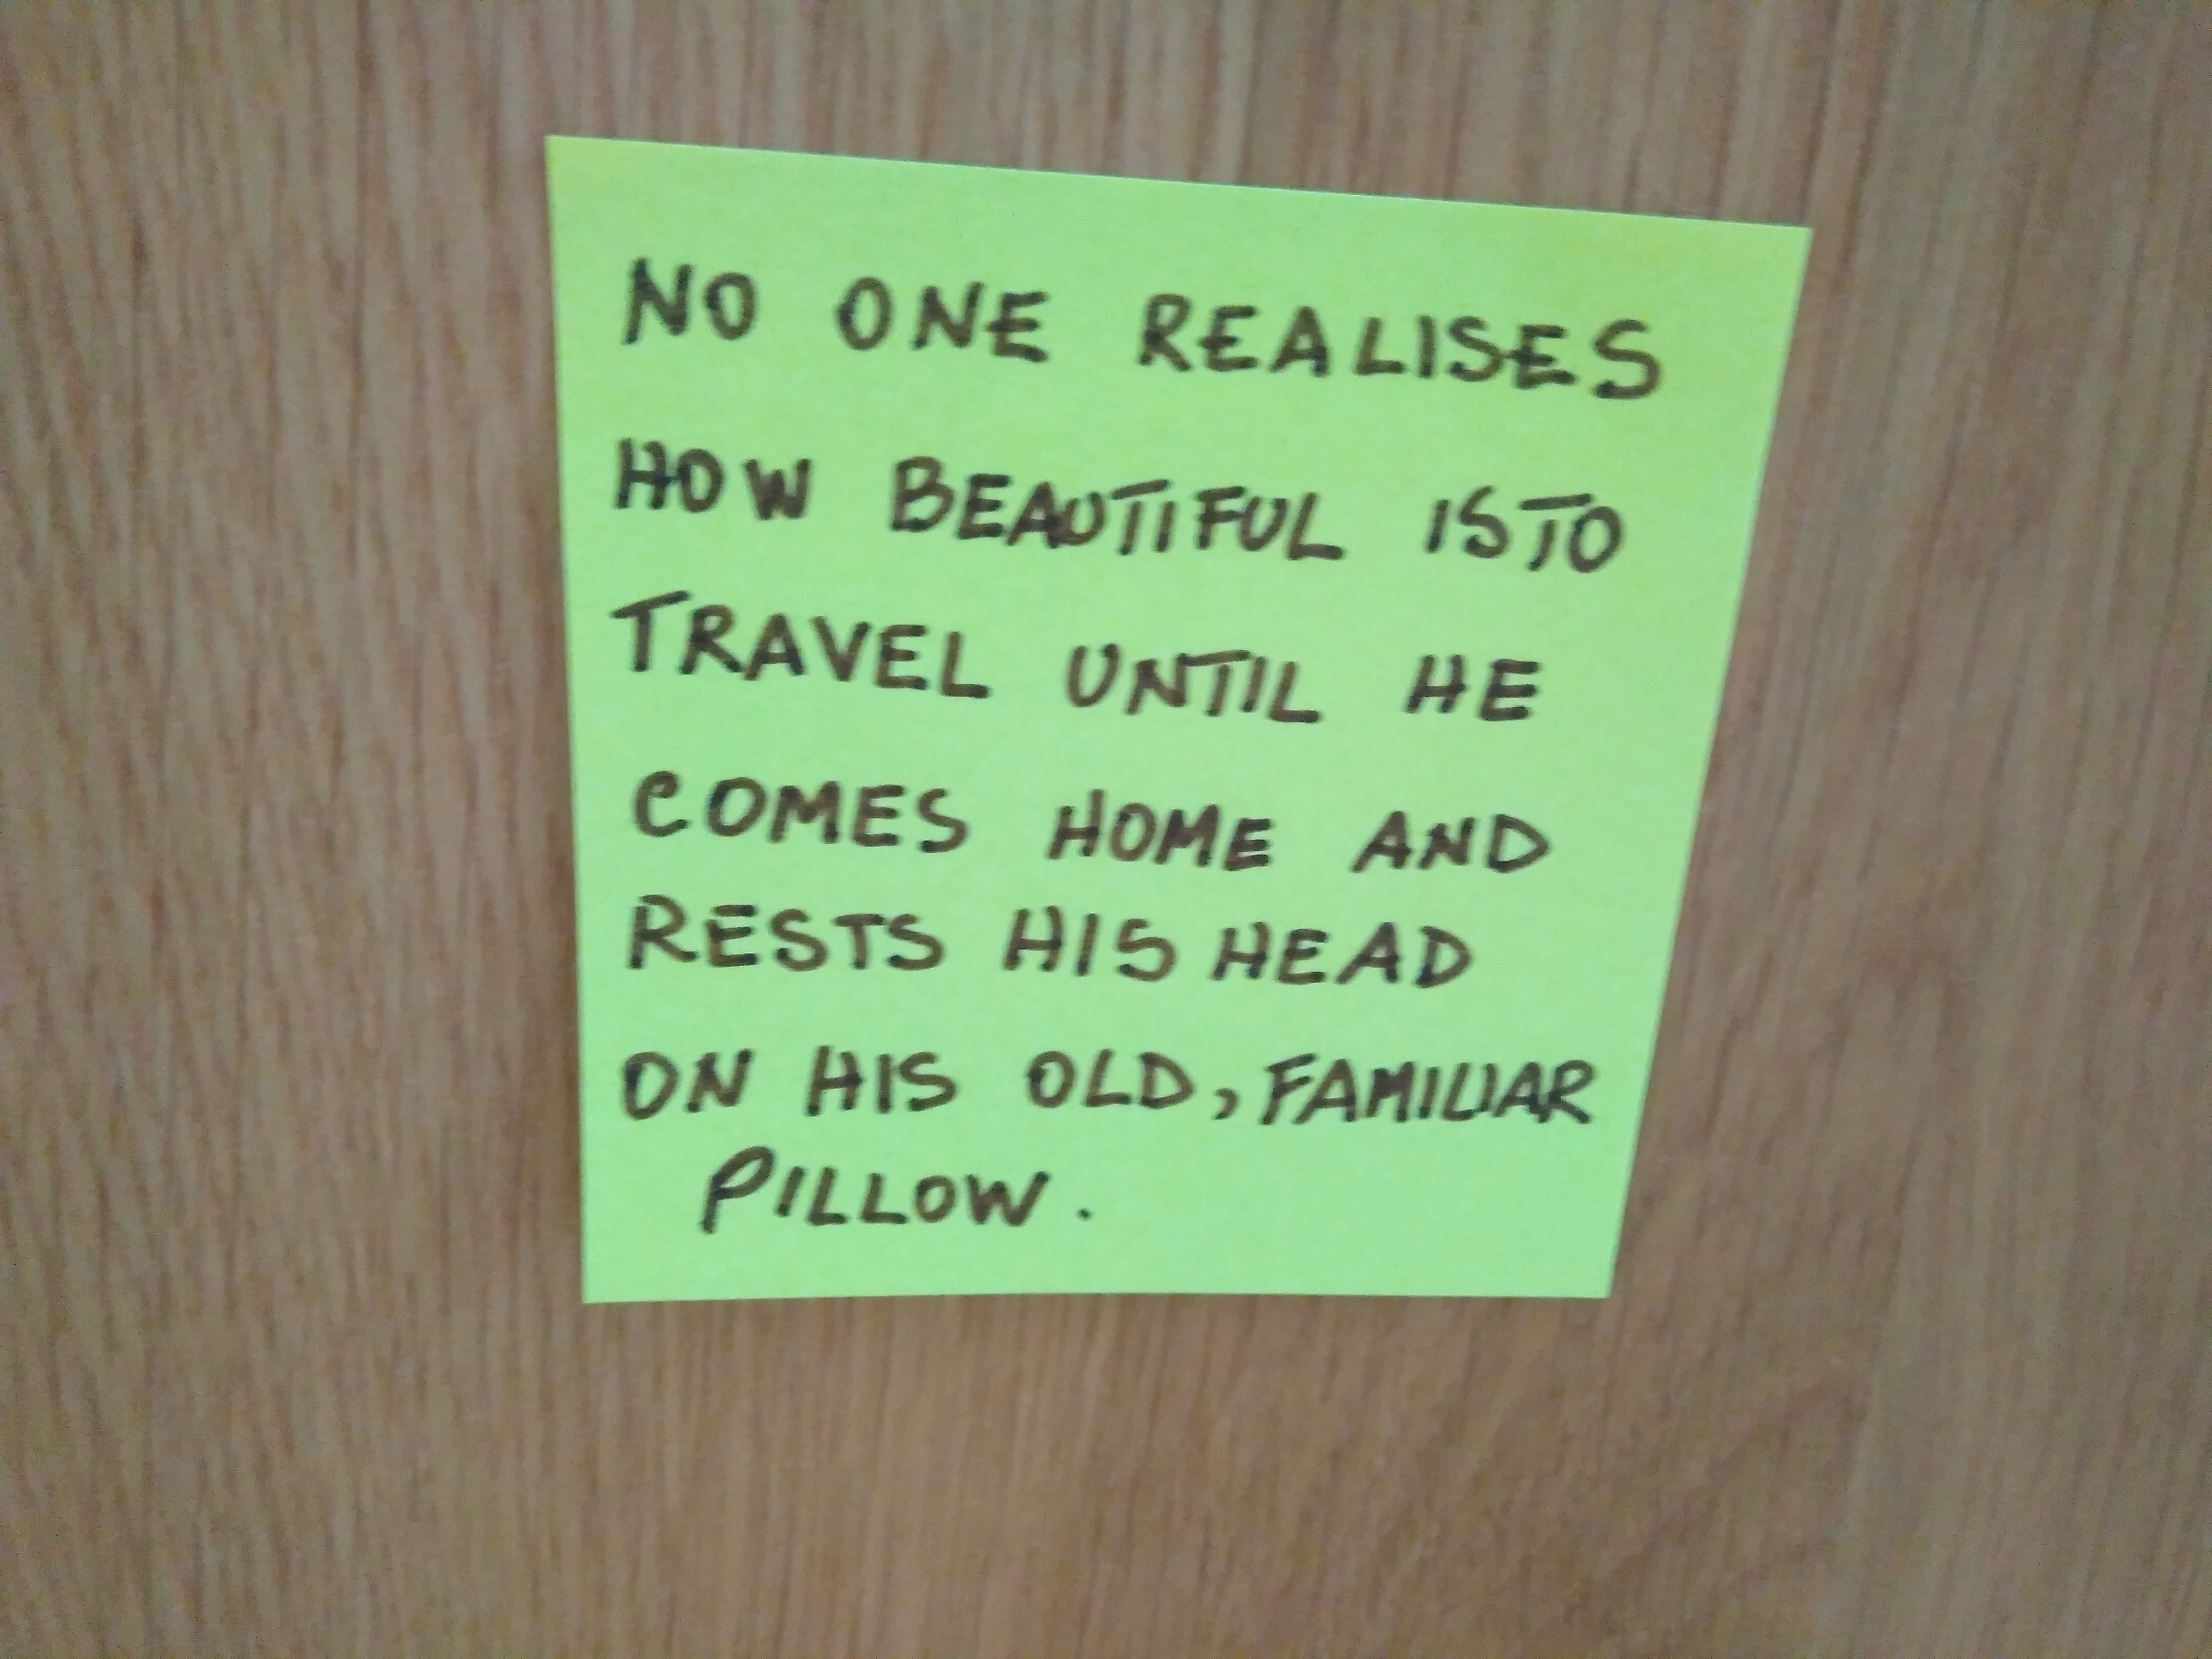 NO ONE REALISES
HOW BEAUTIFUL IS TO
TRAVEL UNTIL HE
COMES HOME AND
RESTS HIS HEAD
ON HIS OLD, FAMILIAR
PILLOW.